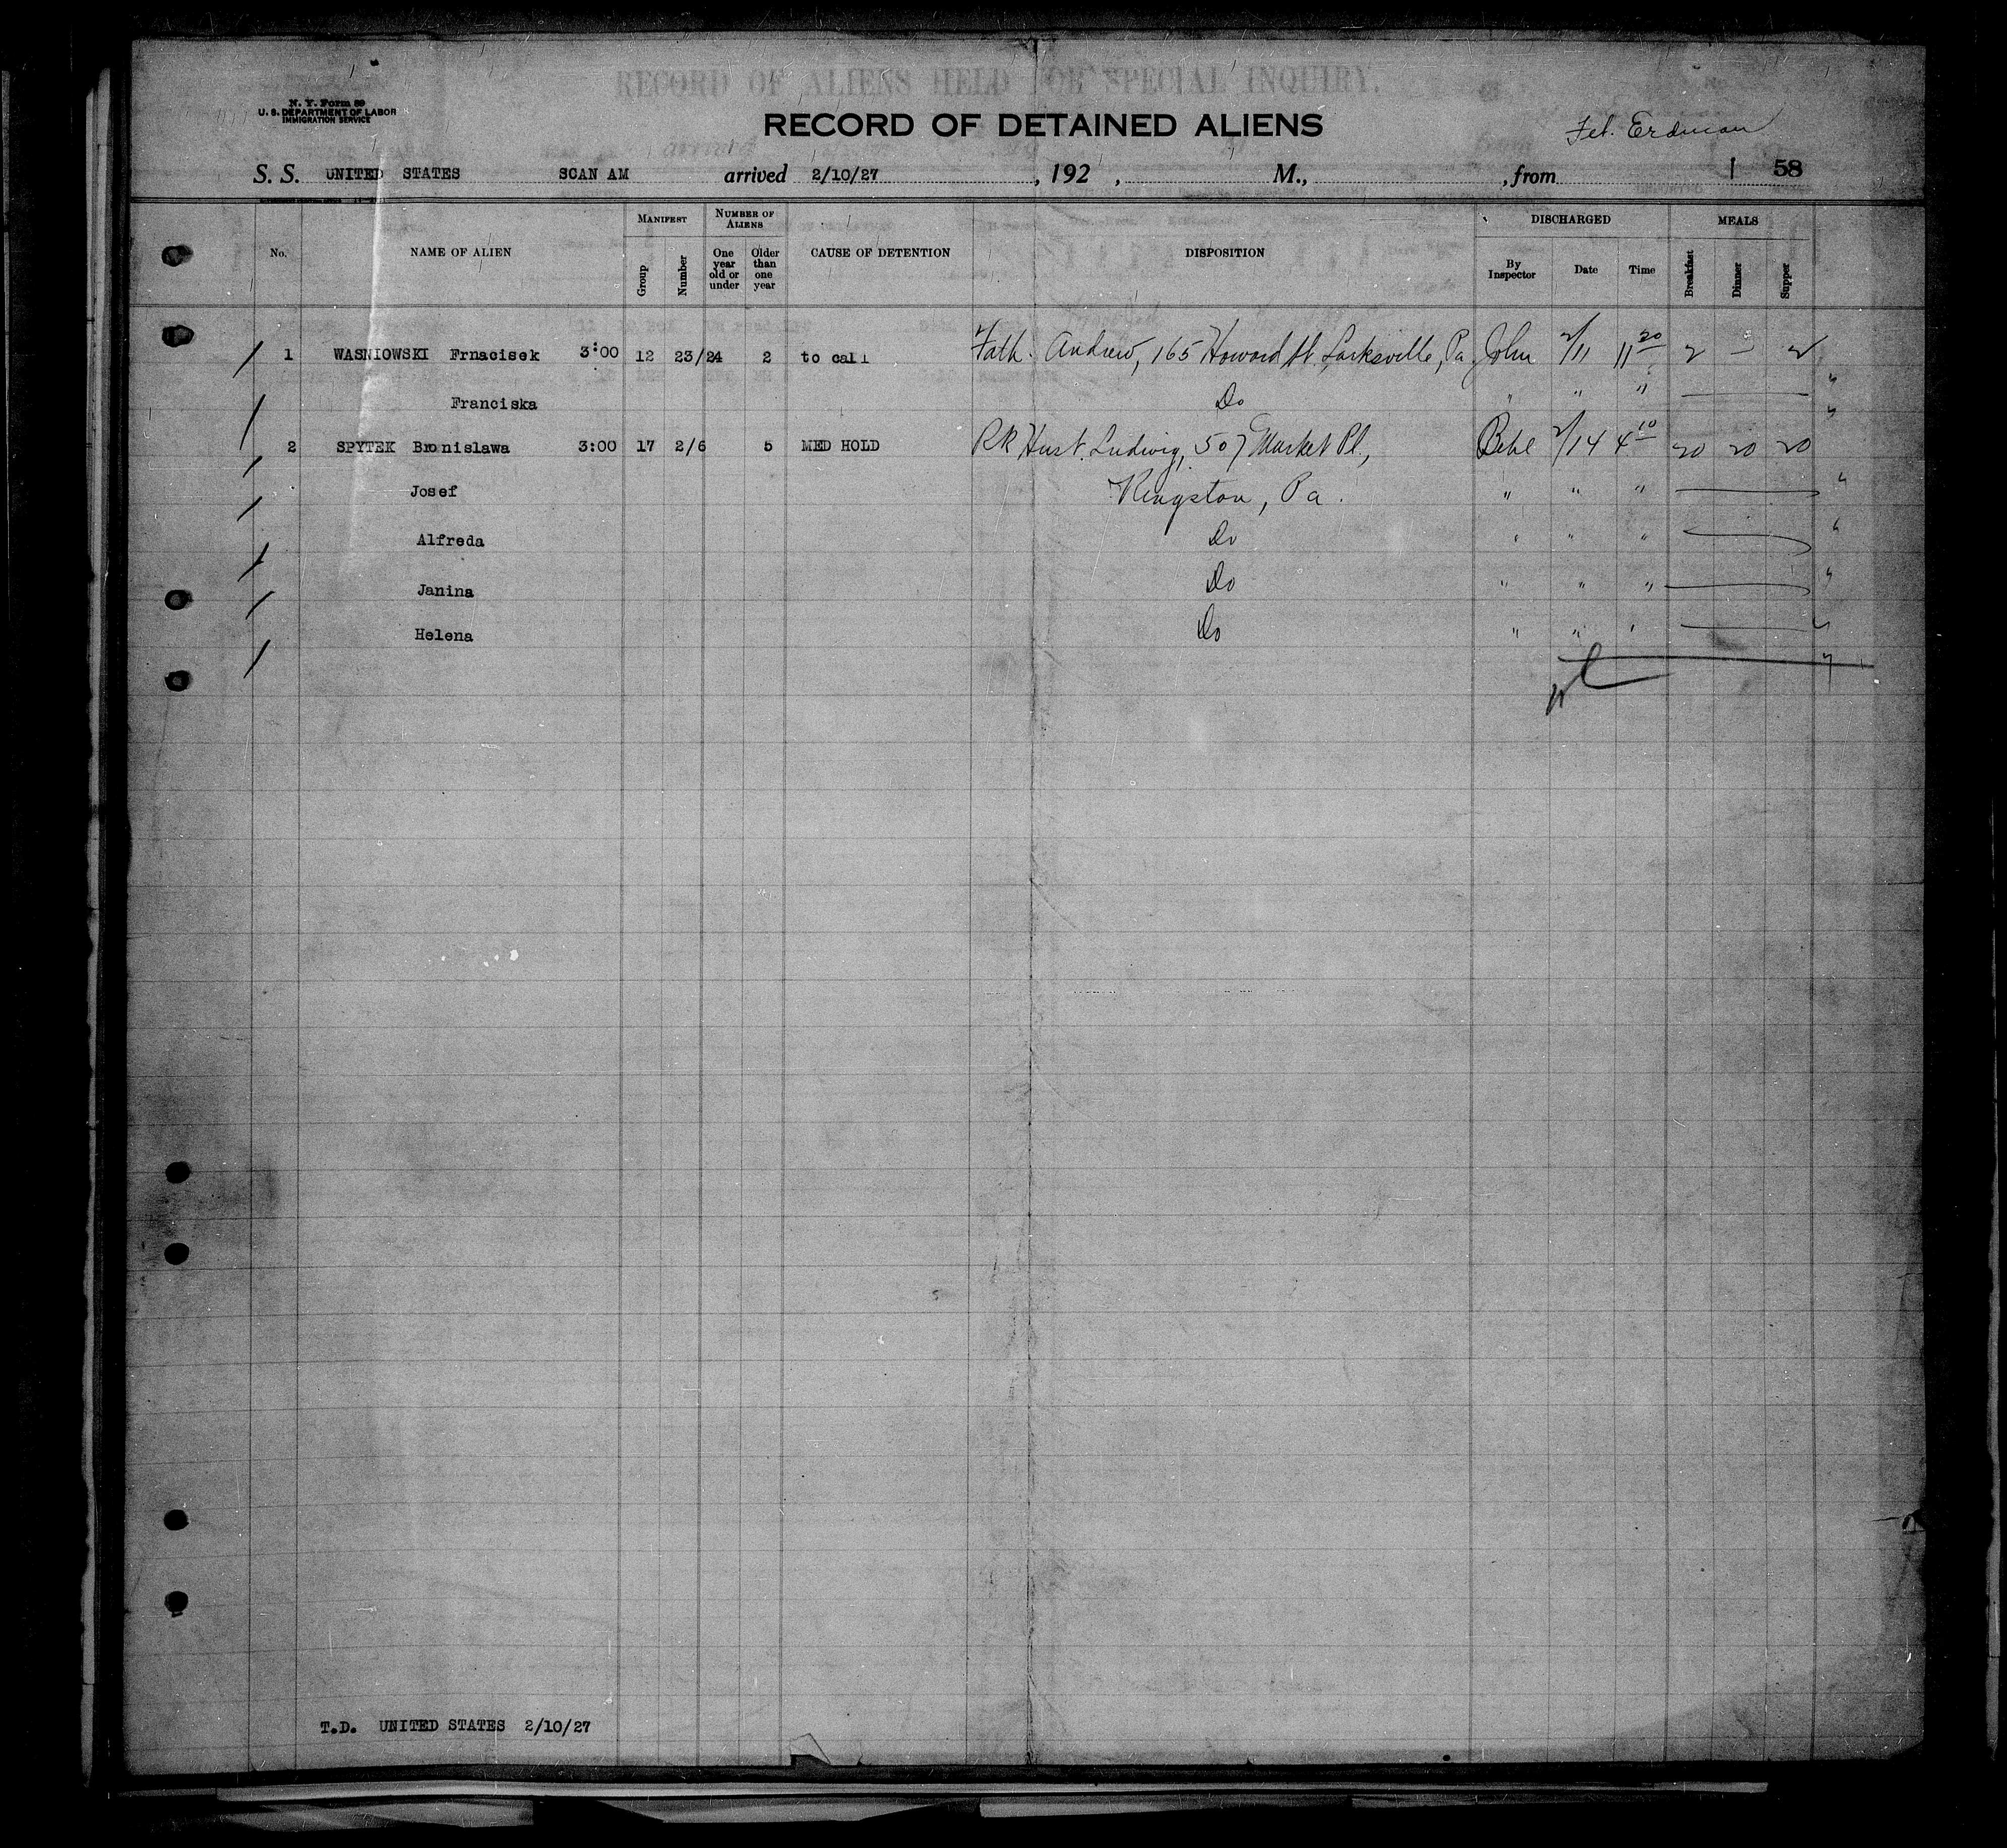 RECORD OF ALIENS HELD FOR SPECIAL INQUIRY.
N. Y. Form 59
U. S. DEPARTMENT OF LABOR
IMMIGRATION SERVICE
RECORD OF DETAINED ALIENS
Erdman
S. S. UNITED STATES SCAN AM arrived 2/10/27, 192 , M., , from 1 58
No. NAME OF ALIEN MANIFEST Group Number NUMBER OF ALIENS One year old or under Older than one year CAUSE OF DETENTION DISPOSITION DISCHARGED By Inspector Date Time MEALS Breakfast Dinner Supper
1 WASNIOWSKI Frnacisek 3:00 12 23/24 2 to call Fath. Andrew, 165 Howard St. Larksville, Pa John 2/11 11 20 2 2
Franciska Do " " "
2 SPYTEK Bronislawa 3:00 17 2/6 5 MED HOLD RR Hust. Ludwig, 507 Market Pl., 2/14 4 10 20 20 20
Josef Kingston, Pa. " " "
Alfreda Do " " "
Janina Do " " "
Helena Do " " "
T.D. UNITED STATES 2/10/27